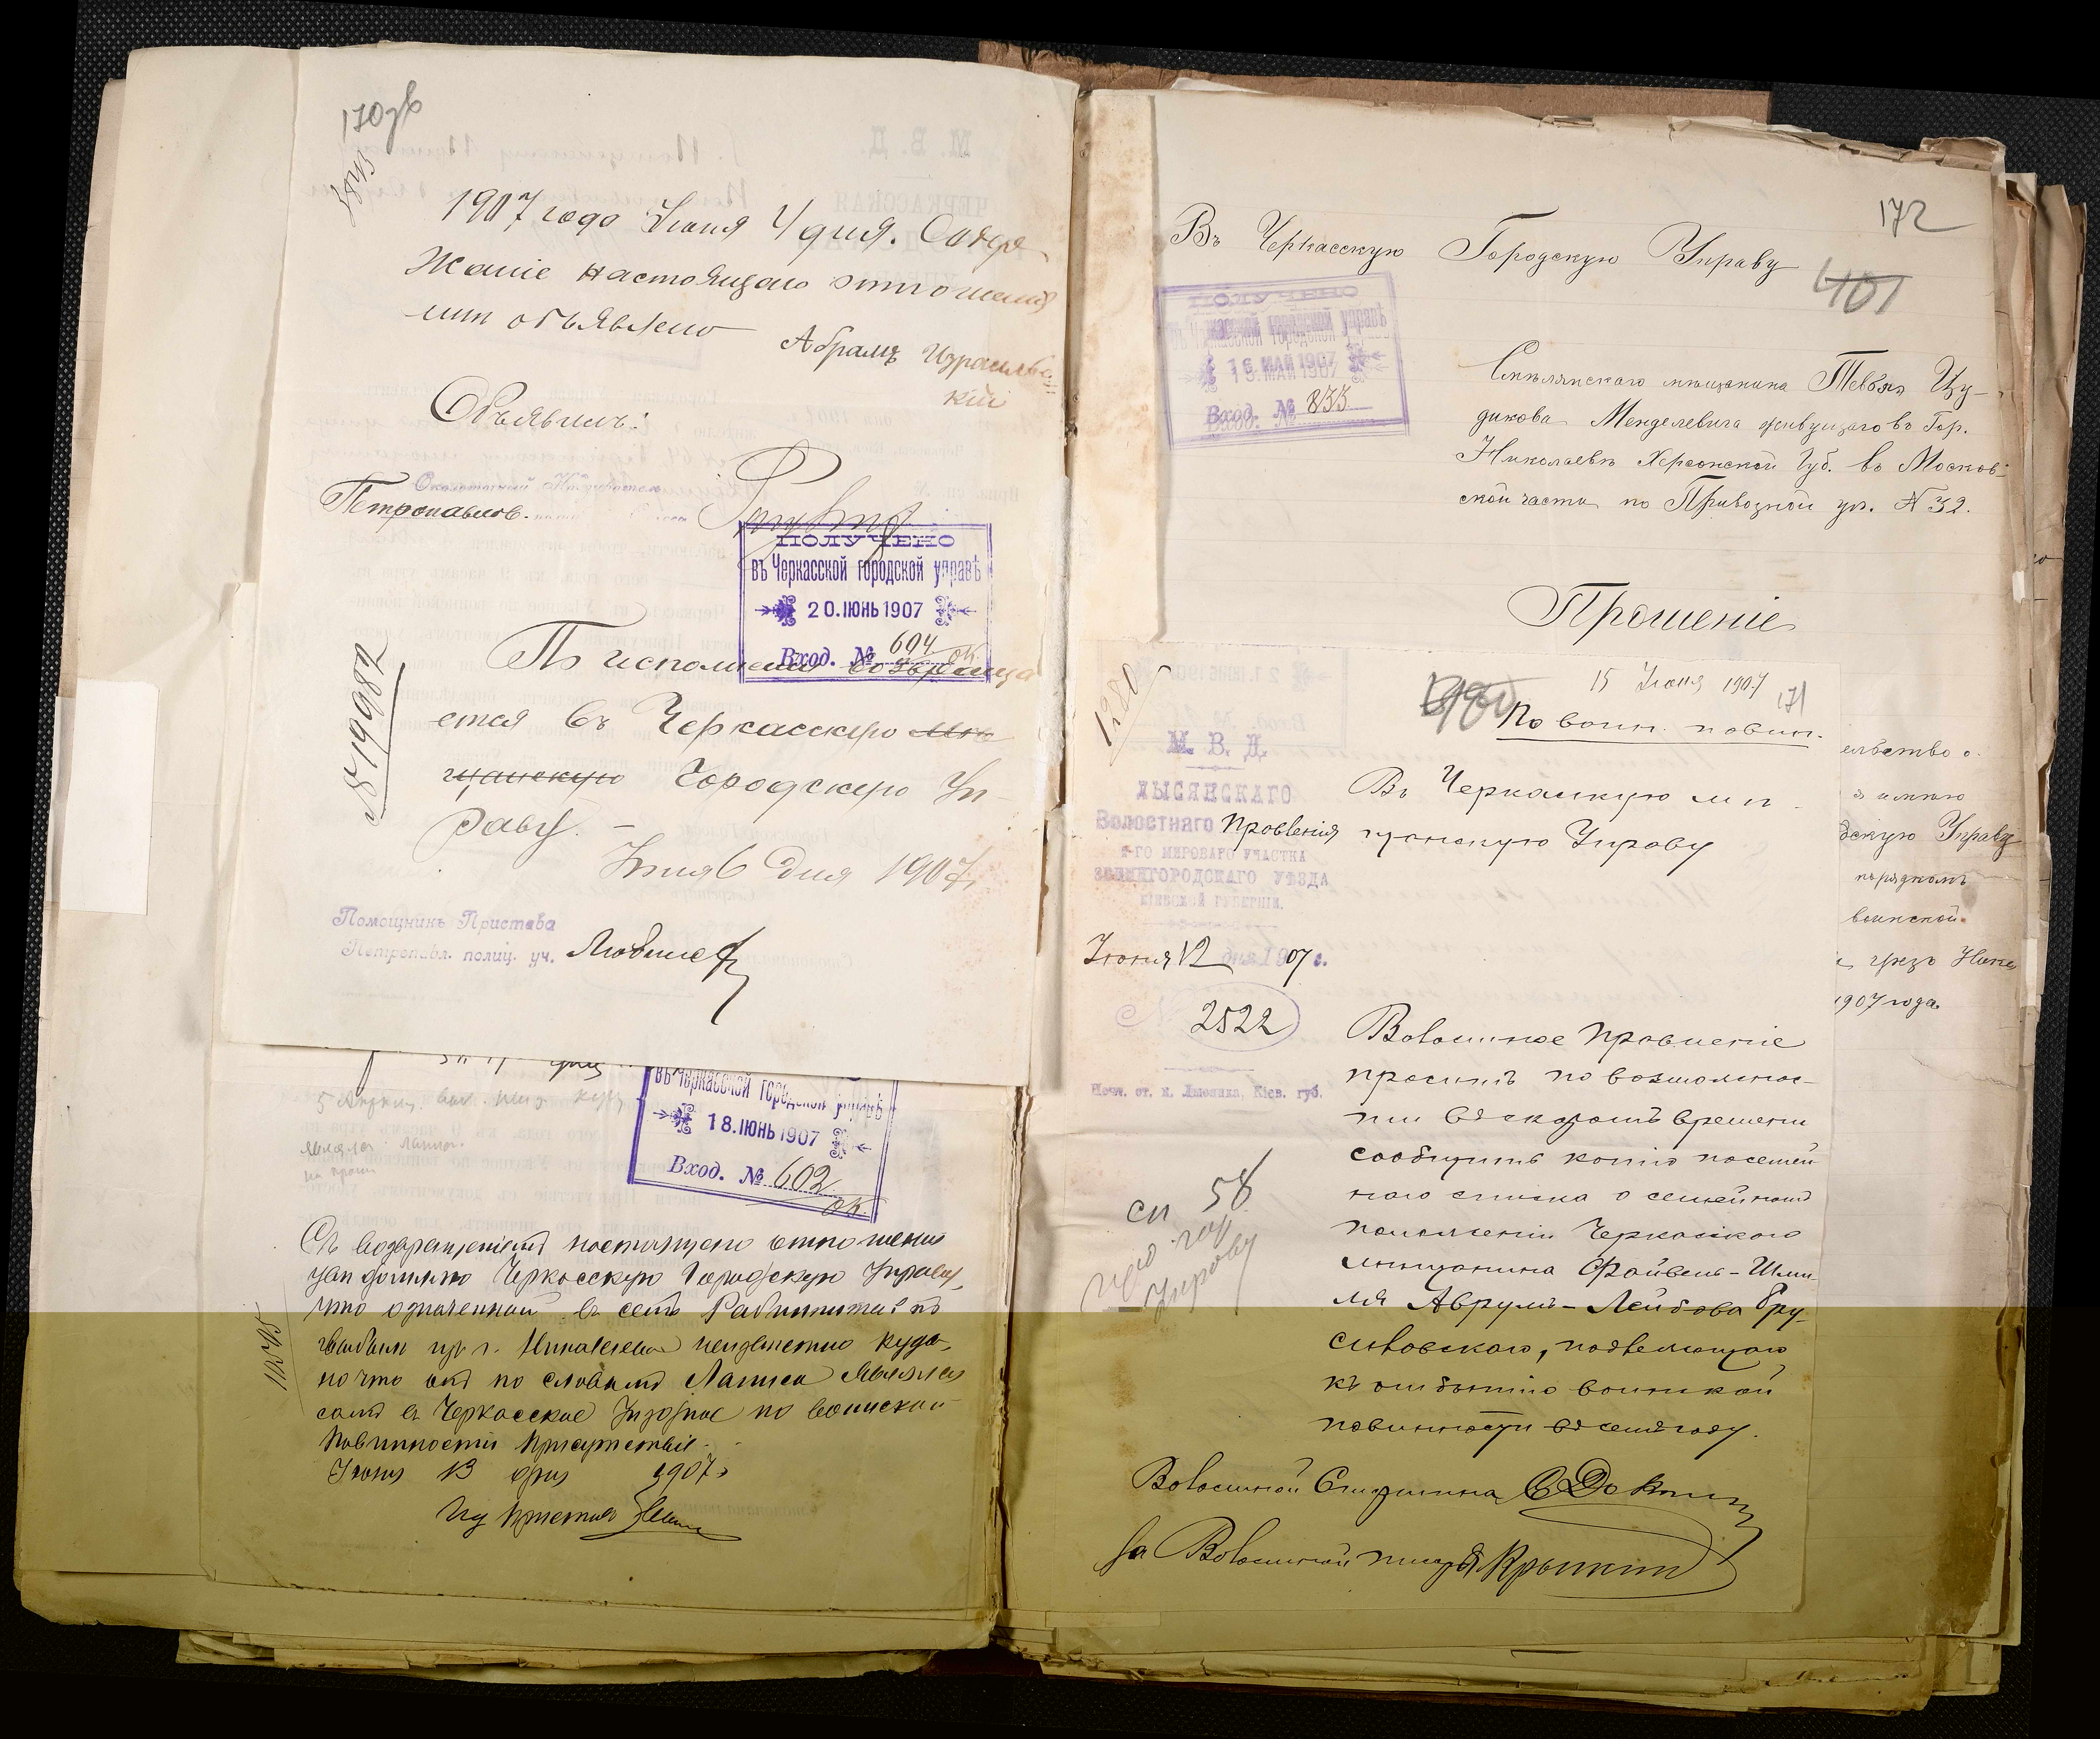 170 об
1907 года Июня 4 дня. Содер
жаніе настоящаго отношенія
мнѣ объявлено
Абрамъ Израильев
скій
Объявилъ:
Околоточный Надзиратель
Петропавлов.
ПОЛУЧЕНО
въ Черкасской городской управѣ
20. ІЮНЬ 1907
Вход. № 604
ок.
№ 19982
По исполненіи возвраща
ется въ Черкасскую Мѣ
щанскую Городскую Уп-
раву. –
Июня 6 дня 1907 г.
Помощникъ Пристава
Петропавл. полиц. уч.
въ Черкасской городской управѣ
18. ІЮНЬ 1907
Вход. № 602
ок.
Съ возвращеніемъ настоящаго отношенія
увѣдомляю Черкасскую Городскую Управу,
что означенный въ семъ
выбылъ изъ г. Николаева неизвѣстно куда,
но что онъ по словамъ явился
самъ въ Черкасское Уѣздное по воинской
повинности Присутствіе.
Июня 13 дня 1907 г.
Ид Пристава
172
Въ Черкасскую Городскую Управу
401
ПОЛУЧЕНО
въ Черкасской городской управѣ
16 МАЙ 1907
Вход. № 835
Смѣлянскаго мѣщанина Тевья Цу-
дикова Менделевича живущаго въ Гор.
Николаевѣ Херсонской Губ. въ Москов-
ской части по Привозной ул. № 32.
Прошеніе
15 Июня 1907
171
По воин. повин.
1280
М. В. Д.
ЛЫСЯНСКАГО
Волостнаго Правленія
МИРОВАГО УЧАСТКА
ЗВЕНИГОРОДСКАГО УѢЗДА
КІЕВСКОЙ ГУБЕРНІИ.
Июня 12 дня 1907 г.
№ 2522
Почт. ст. м. Лысянка, Кіев. губ.
Въ Черкасскую мѣ-
щанскую Управу
Волостное Правленіе
проситъ по возможнос-
ти въ скоромъ времени
сообщить копію посемей
наго списка о семейномъ
положеніи Черкасскаго
мѣщанина Файвель-Шми-
ля Аврумъ-Лейбова Бру-
силовскаго, подлежащаго
къ отбытію воинской
повинности въ семъ году.
сп 58
Гор
Управу
Волостной Старшина
За Волостной писаря
ельство о
дскую Управу
порядкомъ
воинской
чрезъ Нико
1907 года.